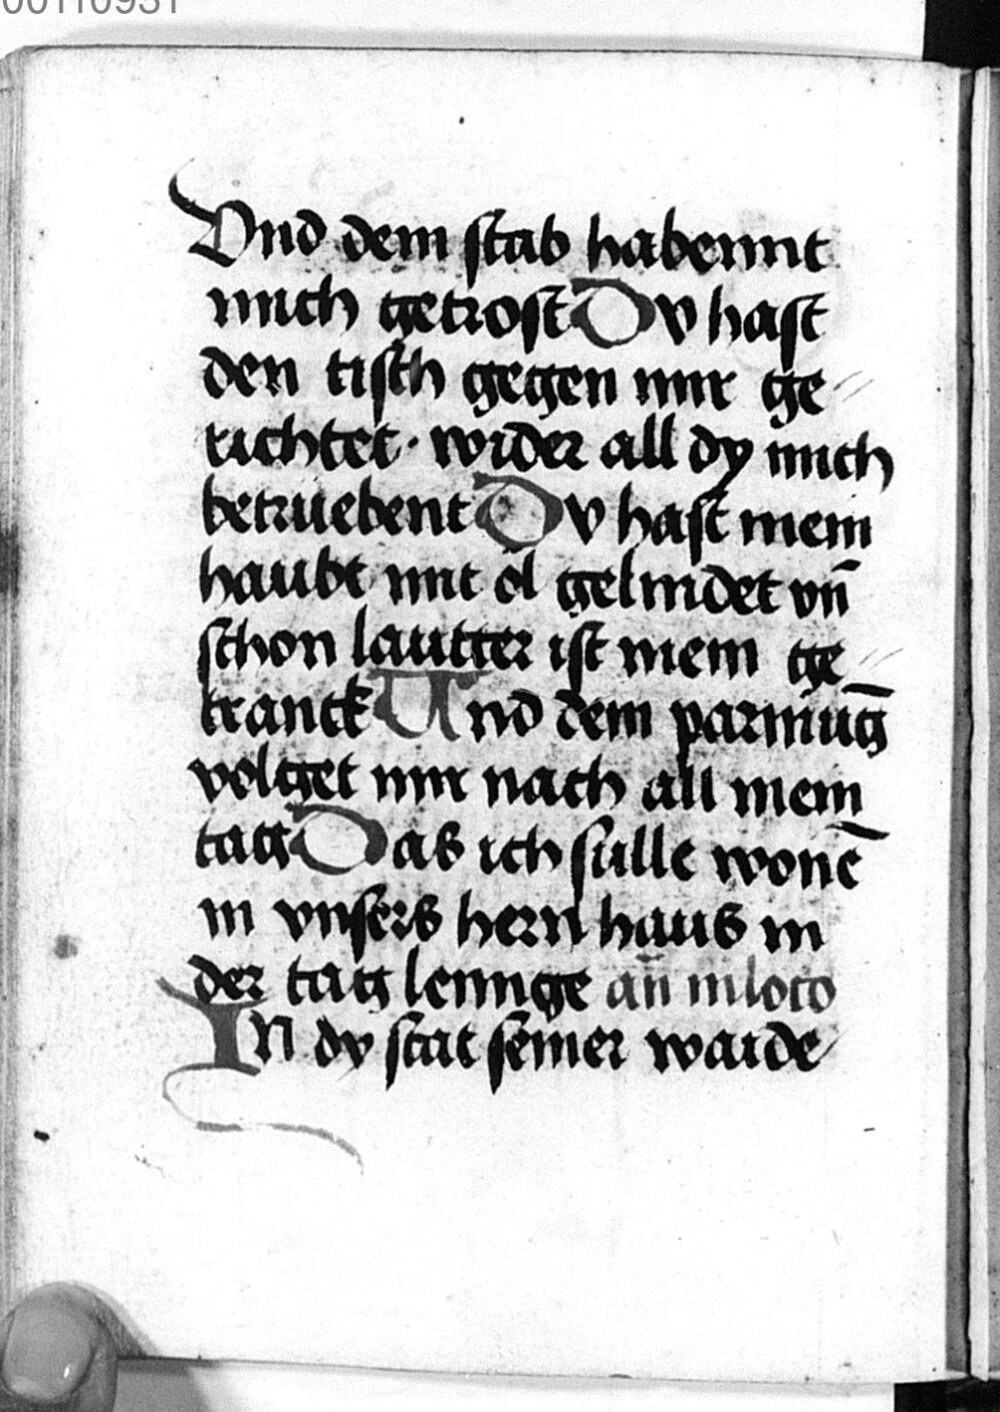 00110931
Vnd dein stab habennt
mich getrost Dv hast
den tisch gegen mir ge//
richtet · wider all dy mich
betruebent Dv hast mein
haubt mit öl gelindet vn̄
schon lautter ist mein ge//
tranck Vnd dein parmūg
volget mir nach all mein
tag Das ich sulle wonē
in vnsers hern haus in
der tag lennge an̄ In loco
IN dy stat seiner waide